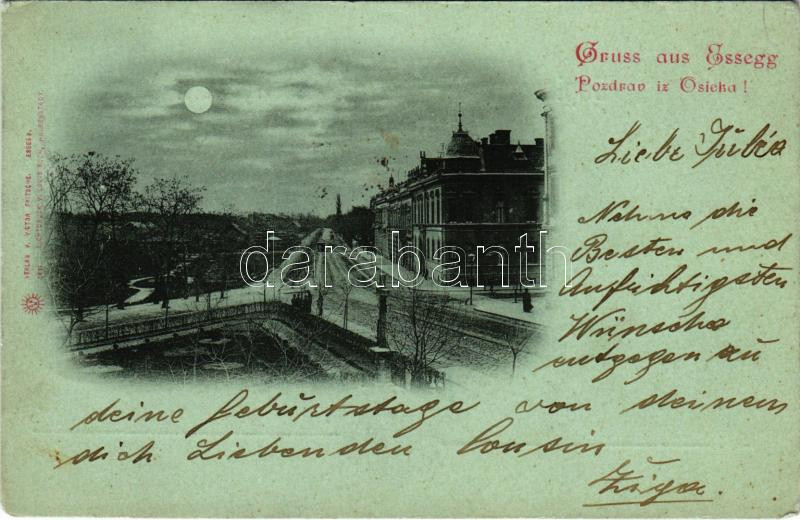 Gruss aus Essegg
Pozdrav iz Osieka!
Liebe
Nehme die
Besten und
Aufrichtigsten
Wünsche
entgegen zu
deine Geburtstage von deinem
dich Liebenden Cousin
Žiga.
VERLAG V. VICTOR FRITSCHE, ESSEGG.
darabanth